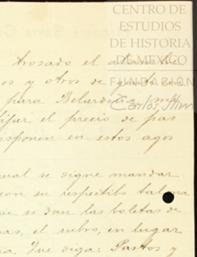 CENTRO DE
ESTUDIOS
DE HISTORIA
DE MÉXICO
FUNDACIÓN
Carlos Slim
Avosado el
os y otros de
para
el precio de pas
sponen en estos
ual se signe mandar
con su respectibo
ue se dan las boletas de
as, el rubro, en lugar
a. Que diga: Pastos y